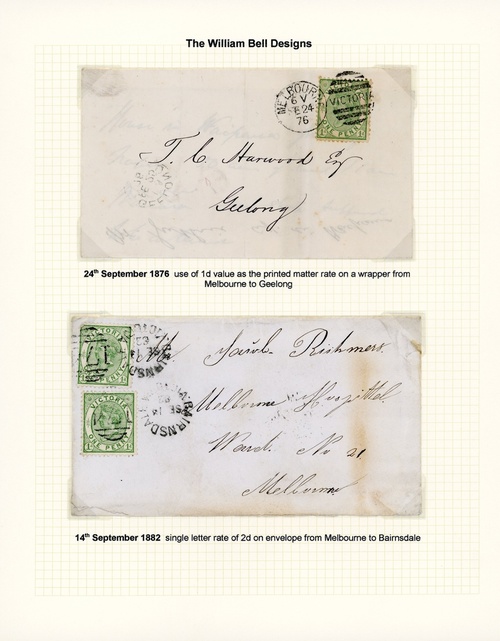 The William Bell Designs
MELBOURNE
6 V
SE 24
76
VICTORIA
ONE PENNY
T. C. Harwood Esq
Geelong
24th September 1876 use of 1d value as the printed matter rate on a wrapper from
Melbourne to Geelong
VICTORIA
ONE PENNY
BAIRNSDALE
VICTORIA
ONE PENNY
BAIRNSDALE
SE 14
Melbourne Hospittel
Ward. No 21
Melbourne
14th September 1882 single letter rate of 2d on envelope from Melbourne to Bairnsdale